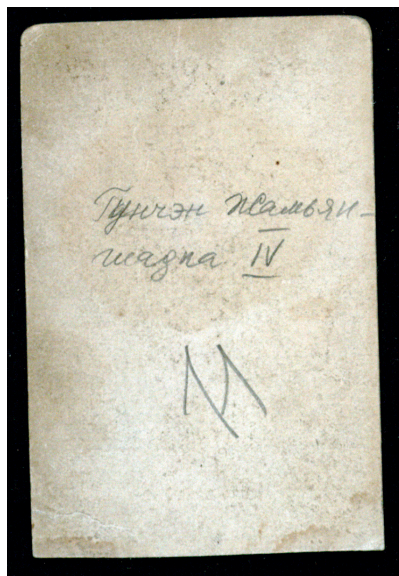 Гунчэн Жамьян-
шадпа IV